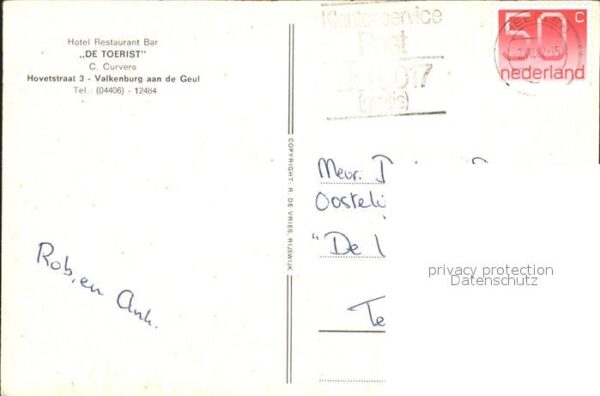 Hotel Restaurant Bar
„DE TOERIST"
C. Curvers
Hovetstraat 3 - Valkenburg aan de Geul
Tel.: (04406) - 12484
Klantenservice
Post
017
(gratis)
50 C
nederland
COPYRIGHT: R. DE VRIES, RIJSWIJK
Mevr.
"De
Te
Rob, en Ank.
privacy protection
Datenschutz